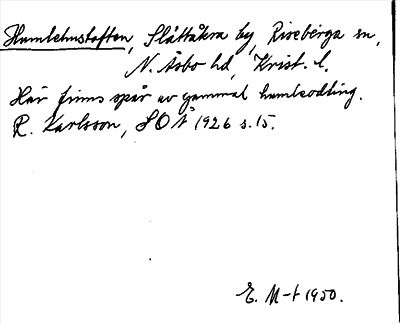 Humletmstoften, Slättåkra by, Riseberga sn,
N. Åsbo hd, Krist. l.
Här finns spår av gammal humleodling.
R. Karlsson, SOÅ 1926 s. 15.
E. M-t 1950.